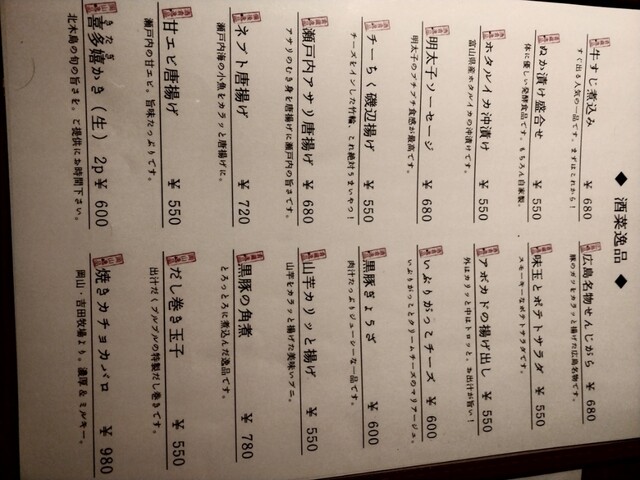 ◆ 酒菜逸品 ◆
牛すじ煮込み ¥ 680
すぐ出る人気の一品です。まずはこれから!
ぬか漬け盛合せ ¥ 550
体に優しい発酵食品です。もちろん自家製。
ホタルイカ沖漬け ¥ 550
富山県産ホタルイカの沖漬けです。
明太子ソーセージ ¥ 680
明太子のプチプチ食感が最高です。
チーちく磯辺揚げ ¥ 550
チーズをインした竹輪、これ絶対うまいやつ!
瀬戸内アサリ唐揚げ ¥ 680
アサリのむき身を唐揚げに瀬戸内の旨さです。
ネブト唐揚げ ¥ 720
瀬戸内海の小魚をカラッと唐揚げに。
甘エビ唐揚げ ¥ 550
瀬戸内の甘エビ。旨味たっぷりです。
喜多嬉かき(生) 2p ¥ 600
きたぎ
北木島の旬の旨さを。ご提供にお時間下さい。
広島名物せんじがら ¥ 680
豚のガツをカラッと揚げた広島名物です。
味玉とポテトサラダ ¥ 550
スモーキーなポテトサラダです。
アボカドの揚げ出し ¥ 550
外はカリッと中はトロッと。お出汁が旨い!
いぶりがっことチーズ ¥ 600
いぶりがっことクリームチーズのマリアージュ。
黒豚ぎょうざ ¥ 600
肉汁たっぷりジューシーな一品です。
山芋カリッと揚げ ¥ 550
山芋をカラッと揚げた美味いアレ。
黒豚の角煮 ¥ 780
とろっとろに煮込んだ逸品です。
だし巻き玉子 ¥ 550
出汁だくプルプルの特製だし巻きです。
焼きカチョカバロ ¥ 980
岡山・吉田牧場より。濃厚&ミルキー。